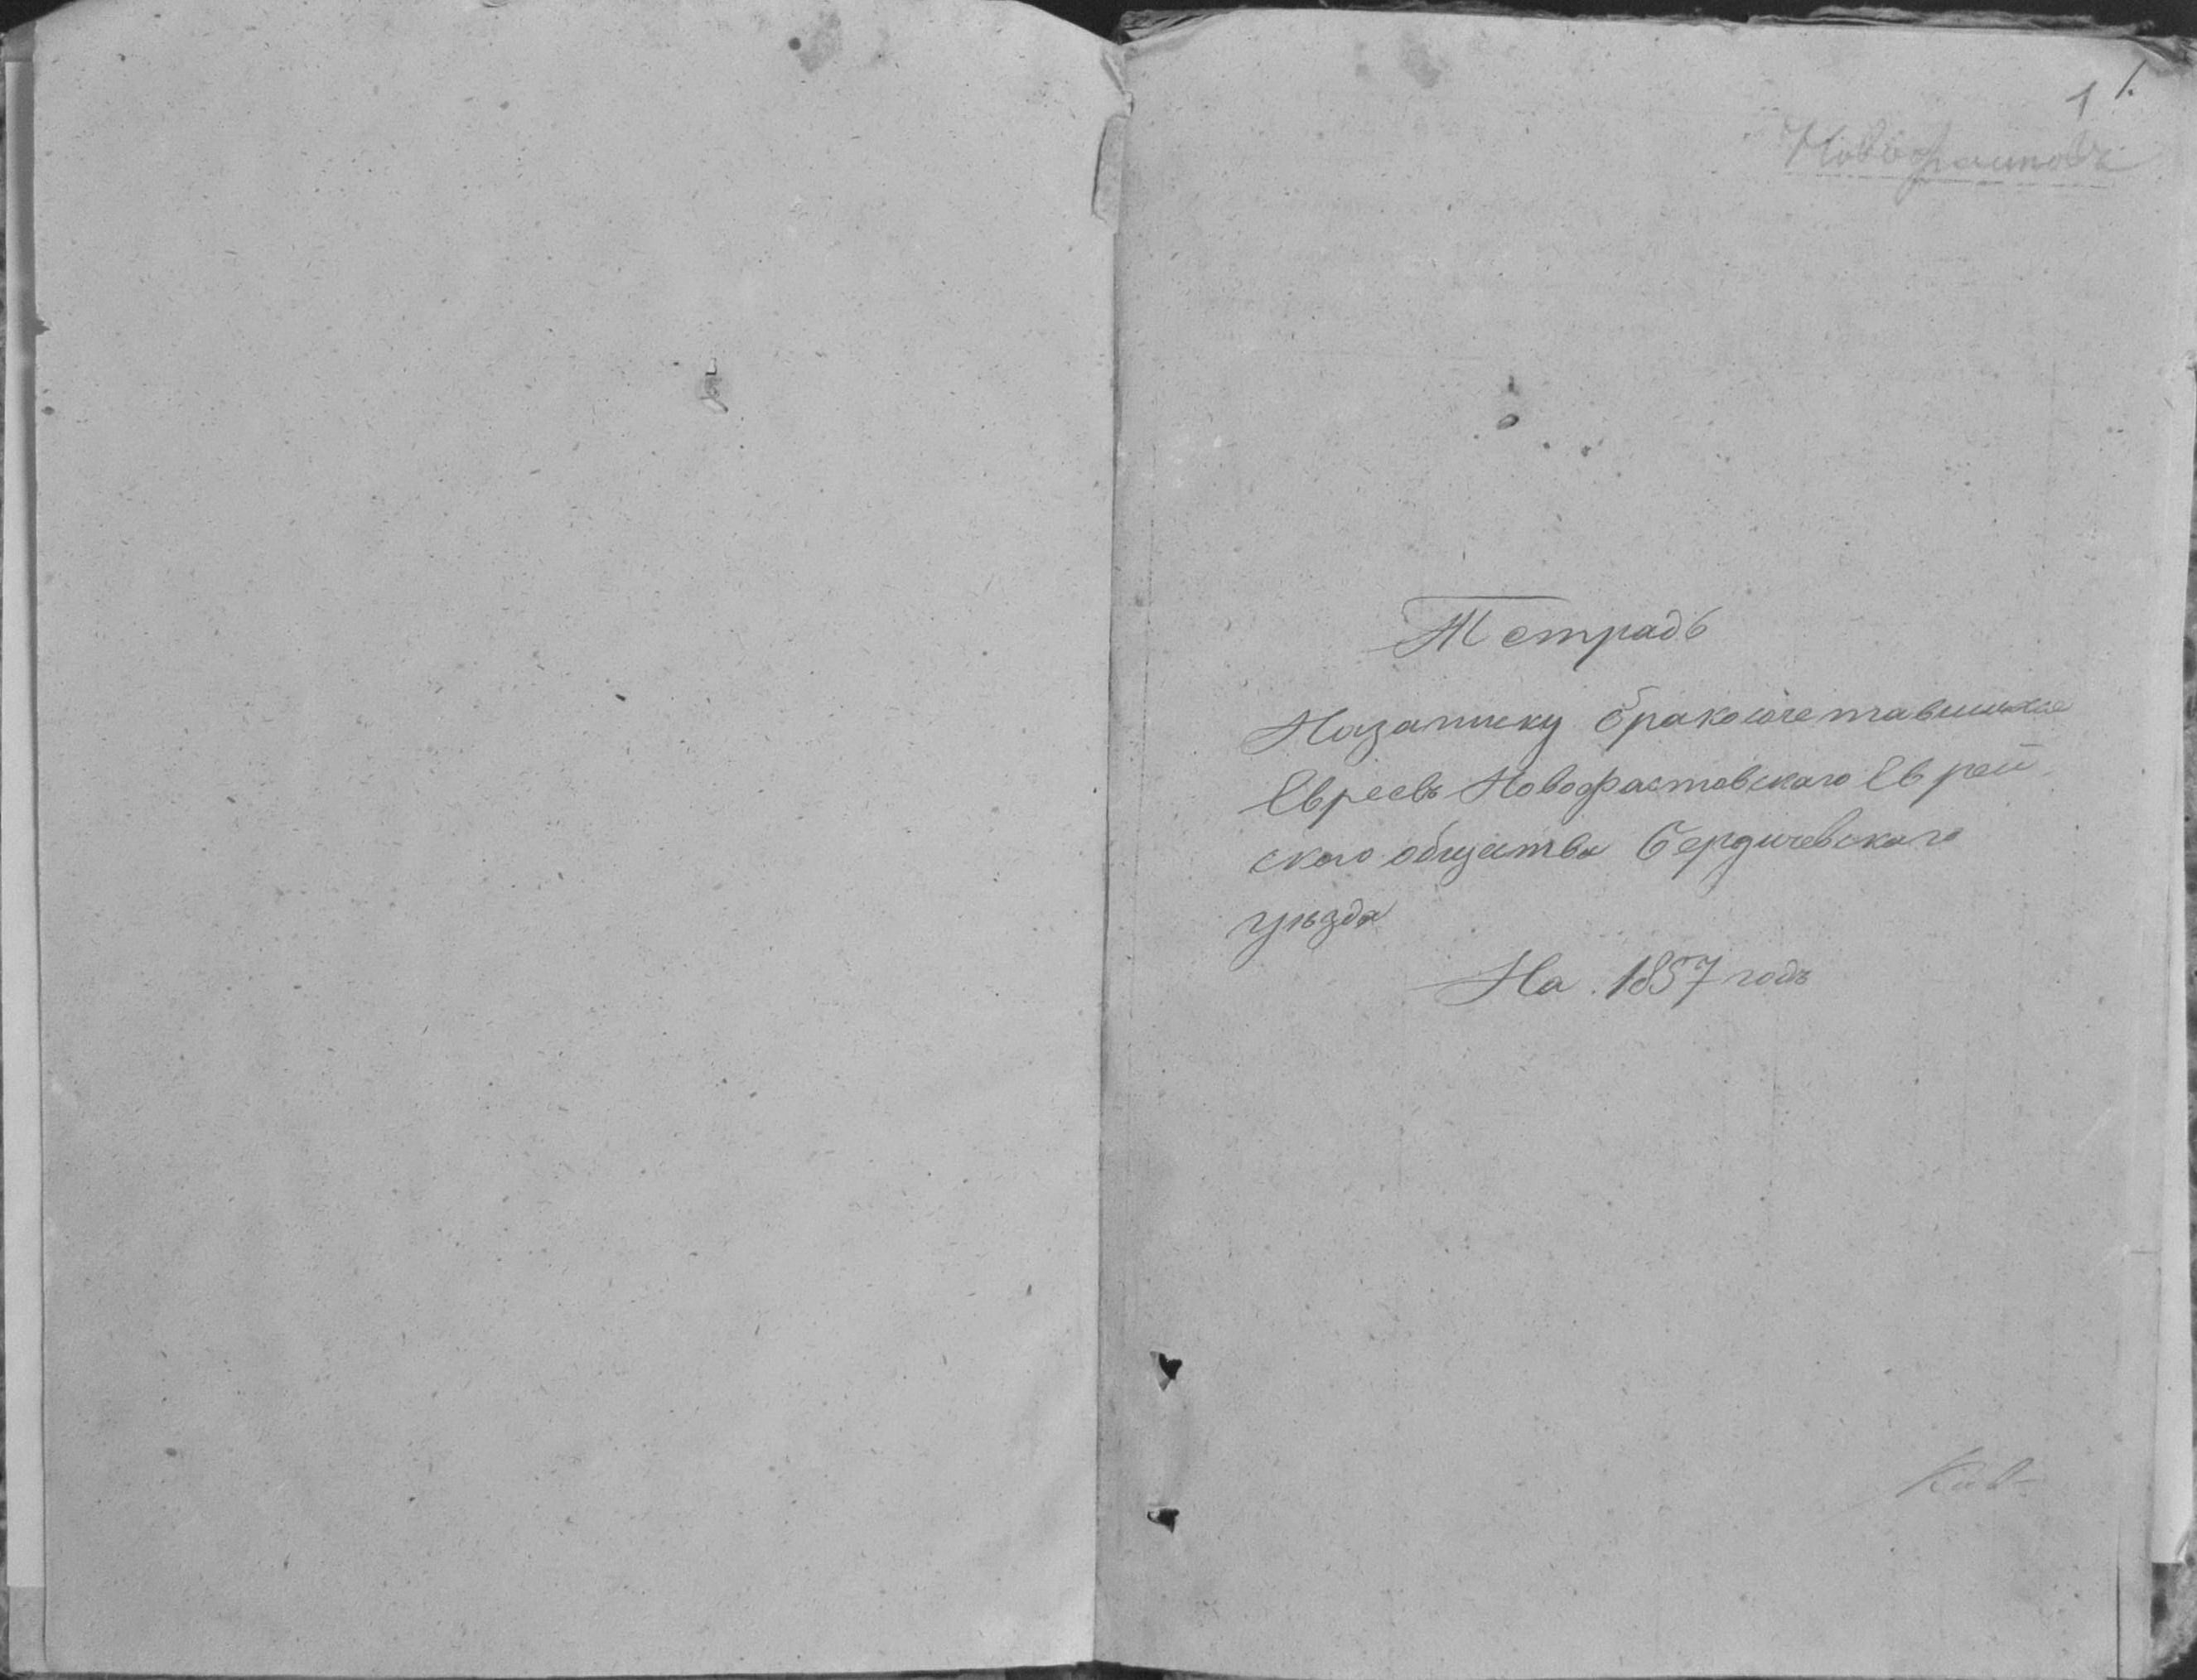 1 1.
Новофастовъ
Тетрадь
Назаписку бракосочетавшихся
Евреевъ Новофастовскаго Еврей
скаго общества Бердичевскаго
уѣзда
На 1857 годъ